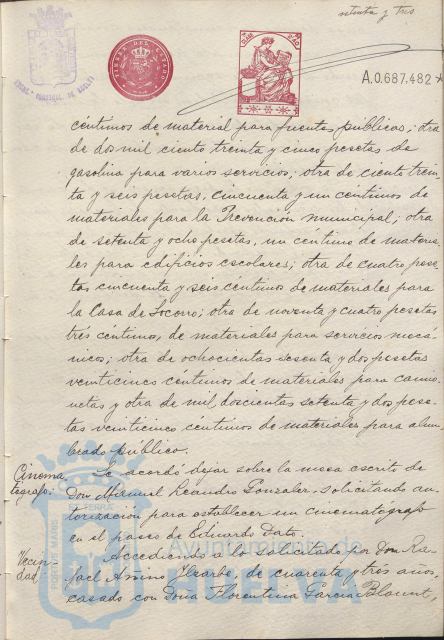 setenta y tres
TIMBRE DEL ESTADO
A.0.687.482*
céntimos de material para fuentes públicas; otra
de dos mil ciento treinta y cinco pesetas de
gasolina para varios servicios; otra de ciento trein-
ta y seis pesetas, cincuenta y un céntimos de
materiales para la Prevención municipal; otra
de setenta y ocho pesetas, un céntimo de materia-
les para edificios escolares; otra de cuatro pese-
tas cincuenta y seis céntimos de materiales para
la Casa de Socorro; otra de noventa y cuatro pesetas
tres céntimos, de materiales para servicios mecá-
nicos; otra de ochocientas sesenta y dos pesetas
veinticinco céntimos de materiales para camio-
netas y otra de mil doscientas setenta y dos pese-
tas veinticinco céntimos de materiales para alum-
brado público.
Cinema-
tógrafo:
Se acordó dejar sobre la mesa escrito de
Don Manuel Leandro Gonzalez, solicitando au-
torización para establecer un cinematógrafo
en el paseo de Eduardo Dato.
Vecin-
dad,
Accediendo a lo solicitado por Don Ra-
fael Amino de cuarenta y tres años,
casado con Doña Florentina Garcia Blount,
Ayuntamiento de
HUELVA